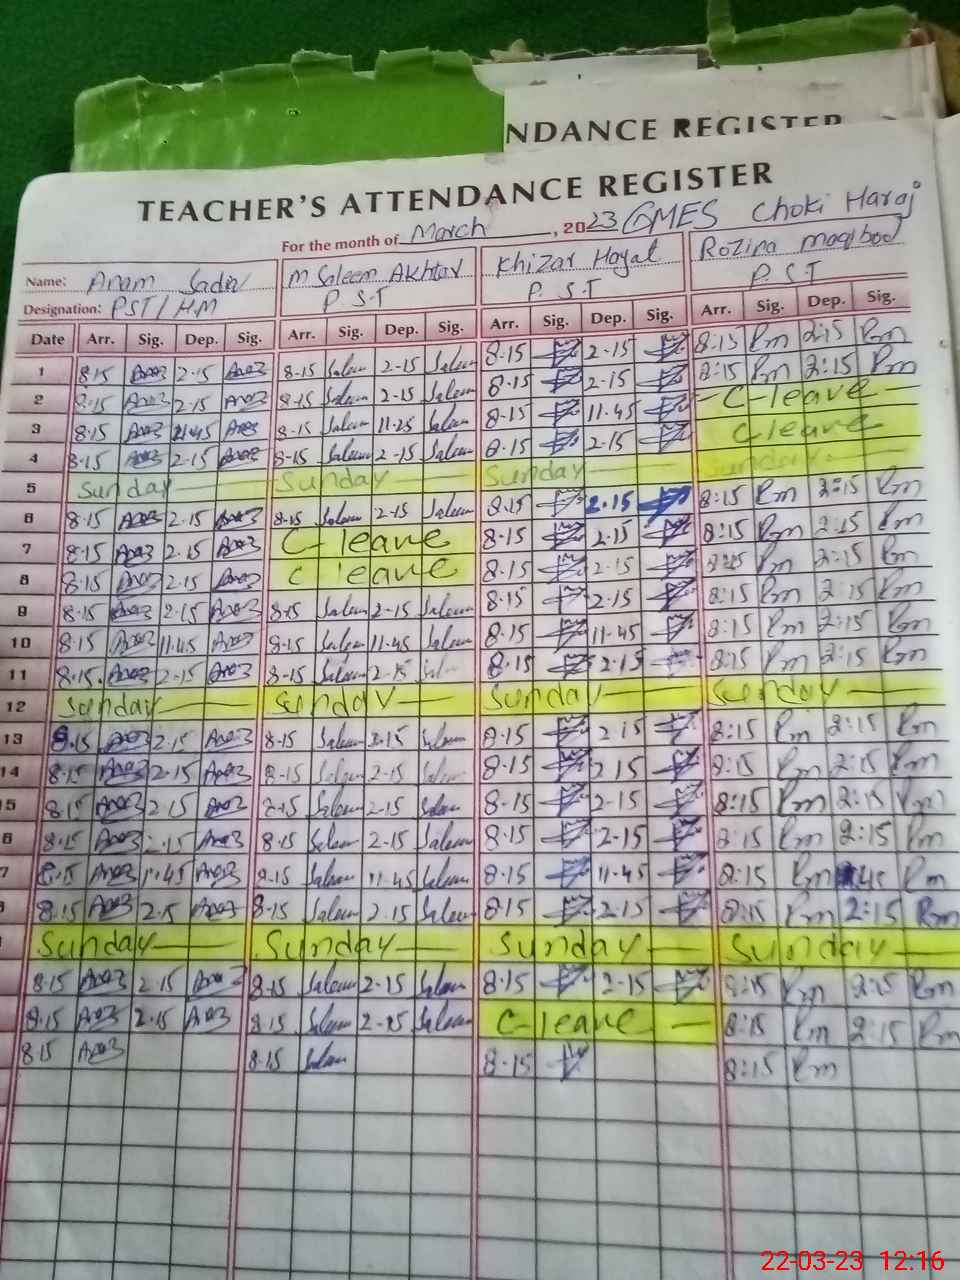 NDANCE REGISTER
TEACHER'S ATTENDANCE REGISTER
For the month of March, 2023 GMES Choki Haraj
Name: Anam Sadia M Saleem Akhtar Khizar Hayat Rozina maqbool
Designation: PST/HM P.S.T P.S.T P.S.T
Date Arr. Sig. Dep. Sig. Arr. Sig. Dep. Sig. Arr. Sig. Dep. Sig. Arr. Sig. Dep. Sig.
1 8.15 2.15 8.15 Saleem 2-15 Saleem 8.15 2.15 8:15 Rm 2:15 Rm
2 8.15 2.15 8.15 Saleem 2-15 Saleem 8.15 2.15 8:15 Rm 2:15 Rm
3 8.15 8.15 Saleem Saleem 8.15 11.45 C-leave
4 8.15 2.15 8.15 Saleem 2-15 Saleem 8.15 2.15 C leave
5 Sunday Sunday Sunday Sunday
6 8.15 2.15 8.15 Saleem 2-15 Saleem 8.15 2.15 8:15 Rm 2:15 Rm
7 8.15 2.15 C-leave 8.15 2.15 8:15 Rm 2:15 Rm
8 8.15 2.15 C leave 8.15 2.15 8:15 Rm 2:15 Rm
9 8.15 2.15 8.15 Saleem 2-15 Saleem 8.15 2.15 8:15 Rm 2:15 Rm
10 8.15 11.45 8.15 Saleem 11.45 Saleem 8.15 11.45 8:15 Rm 2:15 Rm
11 8.15 2.15 8.15 Saleem 2-15 8.15 2.15 8:15 Rm 2:15 Rm
12 Sunday Sunday Sunday Sunday
13 8.15 2.15 8.15 Saleem 2.15 Saleem 8.15 2.15 8:15 Rm 2:15 Rm
14 8.15 2.15 8.15 Saleem 2-15 Saleem 8.15 2.15 8:15 Rm 2:15 Rm
5 8.15 2.15 8.15 Saleem 2-15 Saleem 8.15 2.15 8:15 Rm 2:15 Rm
6 8.15 2.15 8.15 Saleem 2.15 Saleem 8.15 2.15 8:15 Rm 2:15 Rm
7 8.15 11.45 8.15 Saleem 11.45 Saleem 8.15 11.45 8:15 Rm 45 Rm
8.15 2.15 8.15 Saleem 2.15 Saleem 8.15 2.15 8:15 Rm 2:15 Rm
Sunday Sunday Sunday Sunday
8.15 2.15 8.15 Saleem 2.15 Saleem 8.15 2.15 8:15 Rm 2:15 Rm
8.15 2.15 8.15 Saleem 2-15 Saleem C-leave 8:15 Rm 2:15 Rm
8.15 8.15 Saleem 8.15 8:15 Rm
22-03-23 12:16